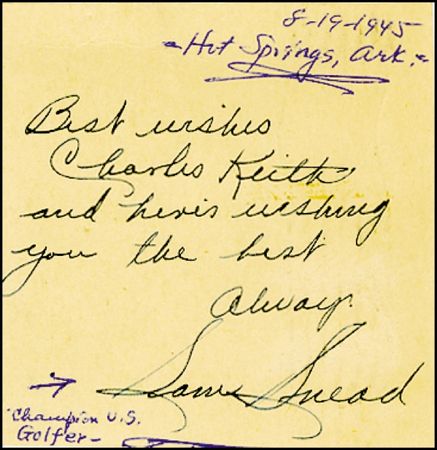 8-19-1945
-Hot Springs, Ark.-
Best wishes
Charles Keith
and here's wishing
you the best
always
Sam Snead
Champion U.S.
Golfer-